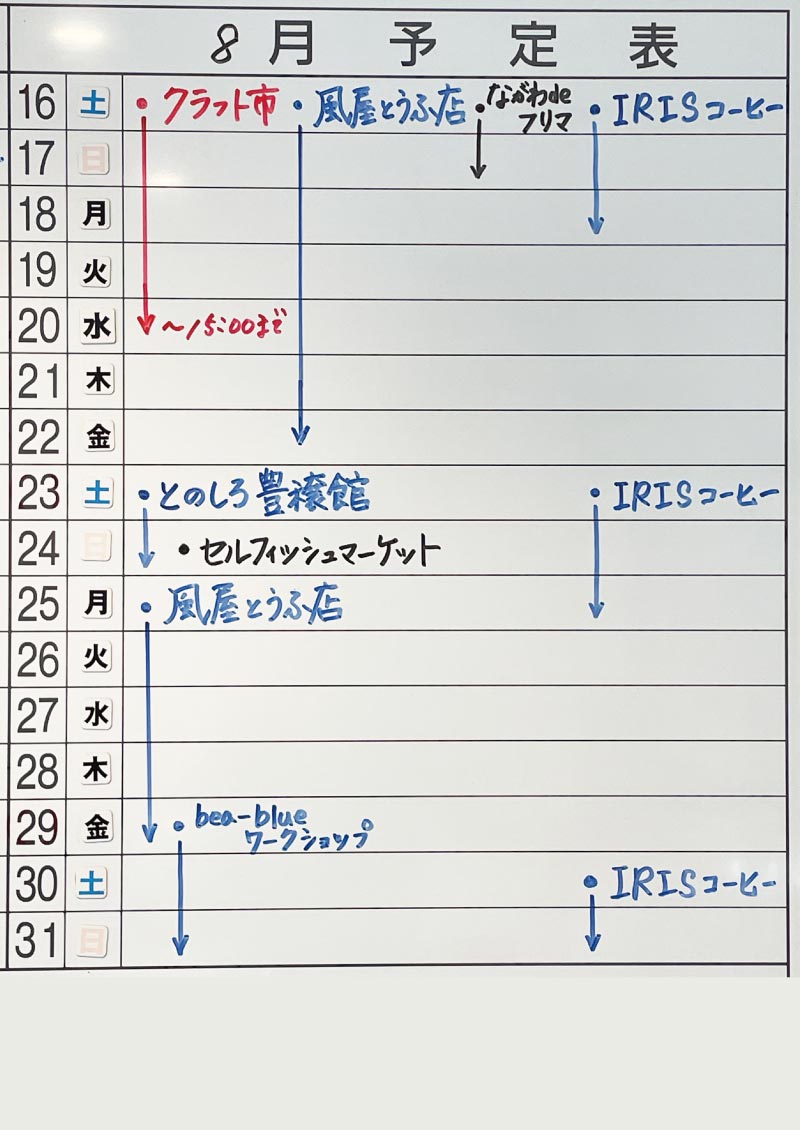 8月予定表
16 土 ・クラフト市 ・風屋とうふ店 ・ながわde フリマ ・IRISコーヒー
17 日
18 月
19 火
20 水 〜15:00まで
21 木
22 金
23 土 ・とのしろ豊穣館 ・IRISコーヒー
24 日 ・セルフィッシュマーケット
25 月 ・風屋とうふ店
26 火
27 水
28 木
29 金 ・bea-blue
ワークショップ
30 土 ・IRISコーヒー
31 日